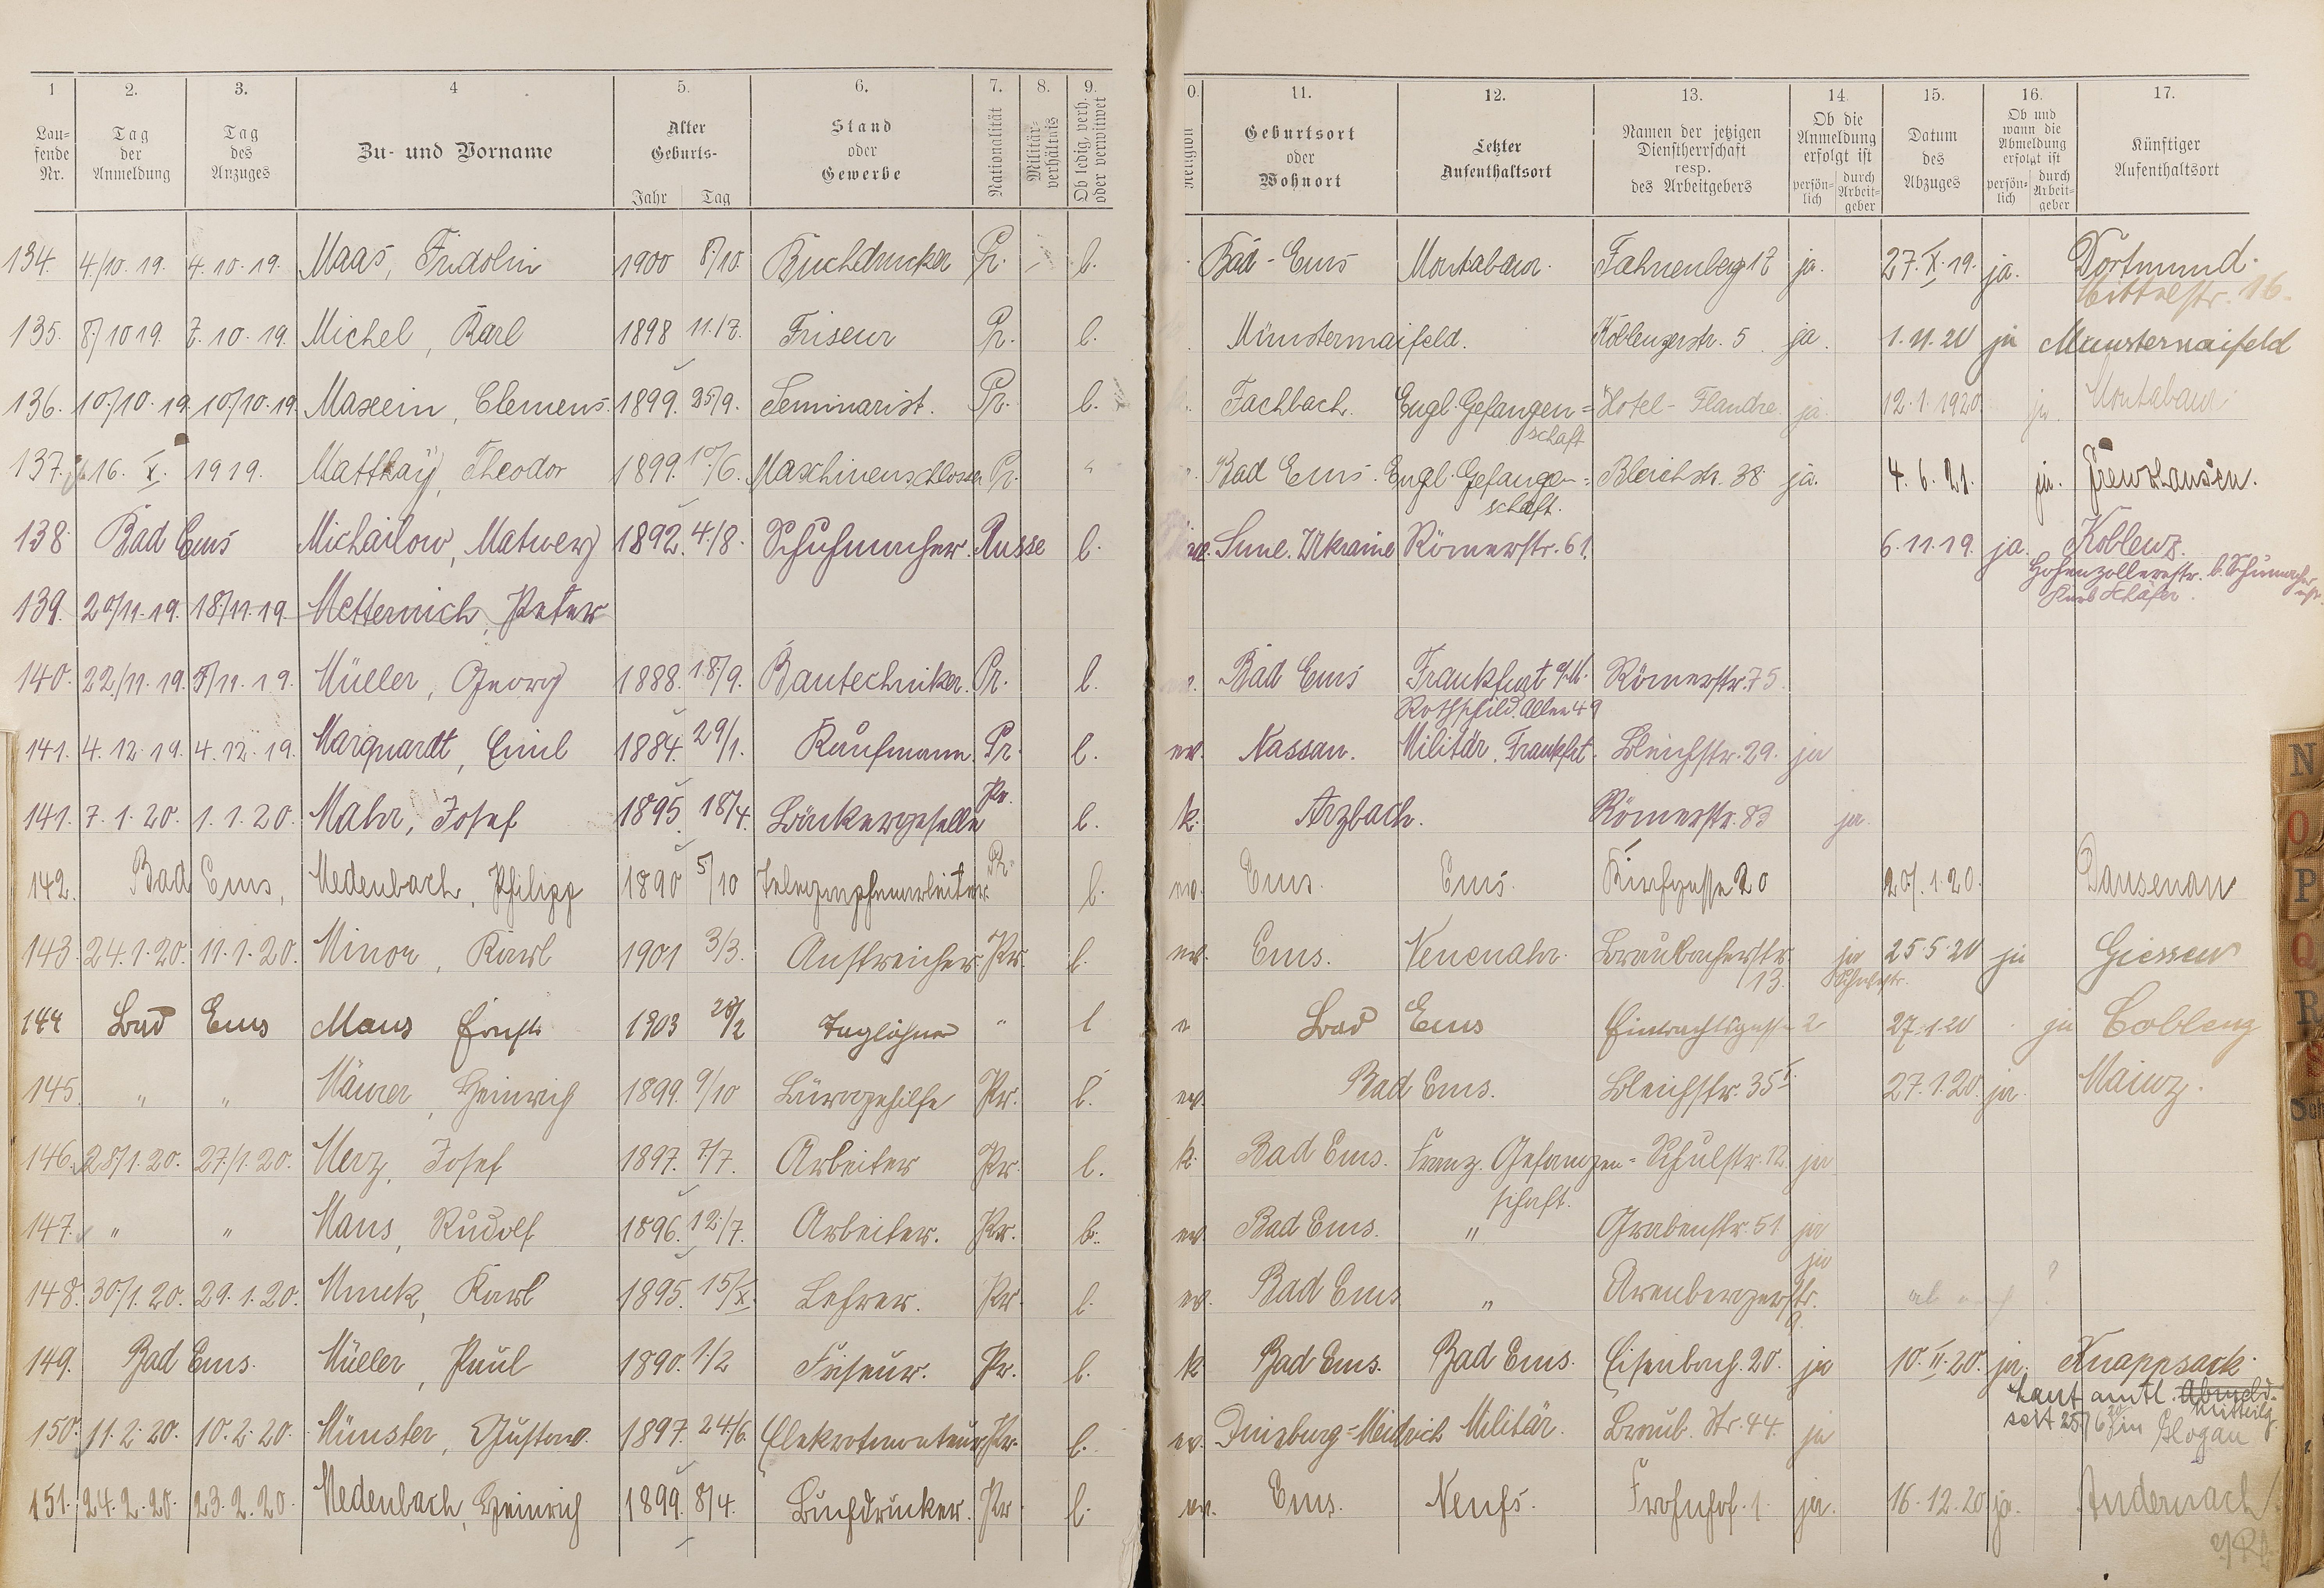 1 2. 3. 4 5. 6. 7. 8. 9. 0. 11. 12. 13. 14. 15. 16. 17.
Lau-
fende
Nr.
Tag
der
Anmeldung
Tag
des
Anzuges
Zu- und Vorname
Alter
Geburts-
Jahr Tag
Stand
oder
Gewerbe
Nationalität
Militär-
verhältnis
Ob ledig, verh.
oder verwitwet
Religion
Geburtsort
oder
Wohnort
Letzter
Aufenthaltsort
Namen der jetzigen
Dienstherrschaft
resp.
des Arbeitgebers
Ob die
Anmeldung
erfolgt ist
persön-
lich
durch
Arbeit-
geber
Datum
des
Abzuges
Ob und
wann die
Abmeldung
erfolgt ist
persön-
lich
durch
Arbeit-
geber
Künftiger
Aufenthaltsort
134. 4./10. 19. 4. 10. 19. Maas, Fridolin 1900 8./10. Buchdrucker Pr. – l. Bad-Ems Montabaur. Fahnenberg 12 ja. 27. X. 19. ja. Dortmund.
Mittelstr. 16.
135. 8./10 19. 7. 10. 19. Michel, Karl 1898 11./7. Friseur Pr. l. Münstermaifeld. Koblenzerstr. 5 ja. 1. 11. 20 ja Munstermaifeld
136. 10./10. 19. 10./10. 19. Maxein, Clemens. 1899. 25/9. Seminarist. Pr. l. Fachbach. Engl. Gefangen= Hotel-Flandre. ja. 12. 1. 1920. ja. Montabaur.
schaft
137. 16. X. 1919. Matthäy, Theodor 1899. 10./6. Maschinenschlosser Pr. " Bad Ems. Engl. Gefangen= Bleichstr. 38 ja. 4. 6. 21. ja.
schaft.
138. Bad Ems Michailow, Matwey 1892. 4./8. Schuhmacher. Russe l. Ukraine Römerstr. 61. 6. 11. 19. ja. Koblenz.
Hohenzollernstr. b. Schumacher
Karl Schäfer.
139. 20/11. 19. 18./11. 19. Metternich, Peter
140. 22/11. 19. 5/11. 19. Müller, Georg 1888. 18/9. Bautechniker. Pr. l. Bad Ems Frankfurt a/M. Römerstr. 75.
Rothschild. Allee 49
141. 4. 12. 19. 4. 12. 19. Marquardt, Emil 1884. 29/1. Kaufmann. Pr. l. ev. Nassau. Militär. Frankfrt. Bleichstr. 29. ja
141. 7. 1. 20. 1. 1. 20. Mahr, Josef 1895. 18/4. Bäckergeselle Pr. l. k. Arzbach. Römerstr. 83 ja.
142. Bad Ems, Medenbach, Philipp 1890 5./10 Telegraphenarbeiter. Pr. l. ev. Ems. Ems. Kirchgasse 20 20/. 1. 20. Dausenau
143. 24. 1. 20. 11. 1. 20. Minor, Karl 1901 3/3. Anstreicher. Pr. l. ev. Ems. Neuenahr. Braubacherstr. ja 25 5 20 ja Giessen
13. Schulstr.
144 Bad Ems Maus Ernst 1903 28/2 Taglöhner " l e Bad Ems Eintrachtsgasse 2 27. 1. 20 ja Coblenz
145. " " Mäurer, Heinrich 1899. 9/10 Bürogehilfe Pr. l. ev. Bad Ems. Bleichstr. 35 I. 27. 1. 20. ja. Mainz.
146. 28/1. 20. 27/1. 20. Merz, Josef 1897. 7/7. Arbeiter Pr. l. k. Bad Ems. Franz. Gefangen= Schulstr. 12 ja
schaft.
147. " " Maus, Rudolf 1896. 12./7. Arbeiter. Pr. l. ev. Bad Ems. " Grabenstr. 51 ja
148. 30/1. 20. 29. 1. 20. Munk, Karl 1895. 15/X. Lehrer. Pr. l. ev. Bad Ems " Arenbergerstr. ja ?
9.
149. Bad Ems. Müller, Paul 1890. 1./2 Friseur. Pr. l. k. Bad Ems. Bad Ems. Eisenbach. 20. ja 10. II. 20. ja. Knappsack.
Laut amtl. Abmeld.
Mitteilg.
seit 25/6 20 in Glogau
150. 11. 2. 20. 10. 2. 20. Münster, Gustav. 1897. 24/6. Elekrotmonteur Pr. l. ev. Duisburg-Meidrich Militär. Braub. Str. 44. ja
151. 24. 2. 20. 23. 2. 20. Medenbach, Heinrich 1899. 8/4. Buchdrucker. Pr. l. ev. Ems. Neuß. Fronhof. 1. ja. 16. 12. 20 ja. Andernach
a/Rh.
N
O
P
Q
R
S
Sch